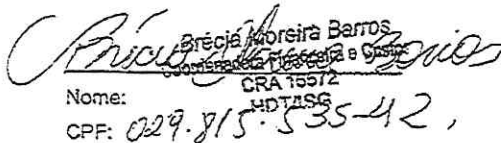 Brécia Moreira Barros
Coordenadora Financeira e Custos
CRA 15572
Nome: HDT/ISG
CPF: 029.815.535-42,